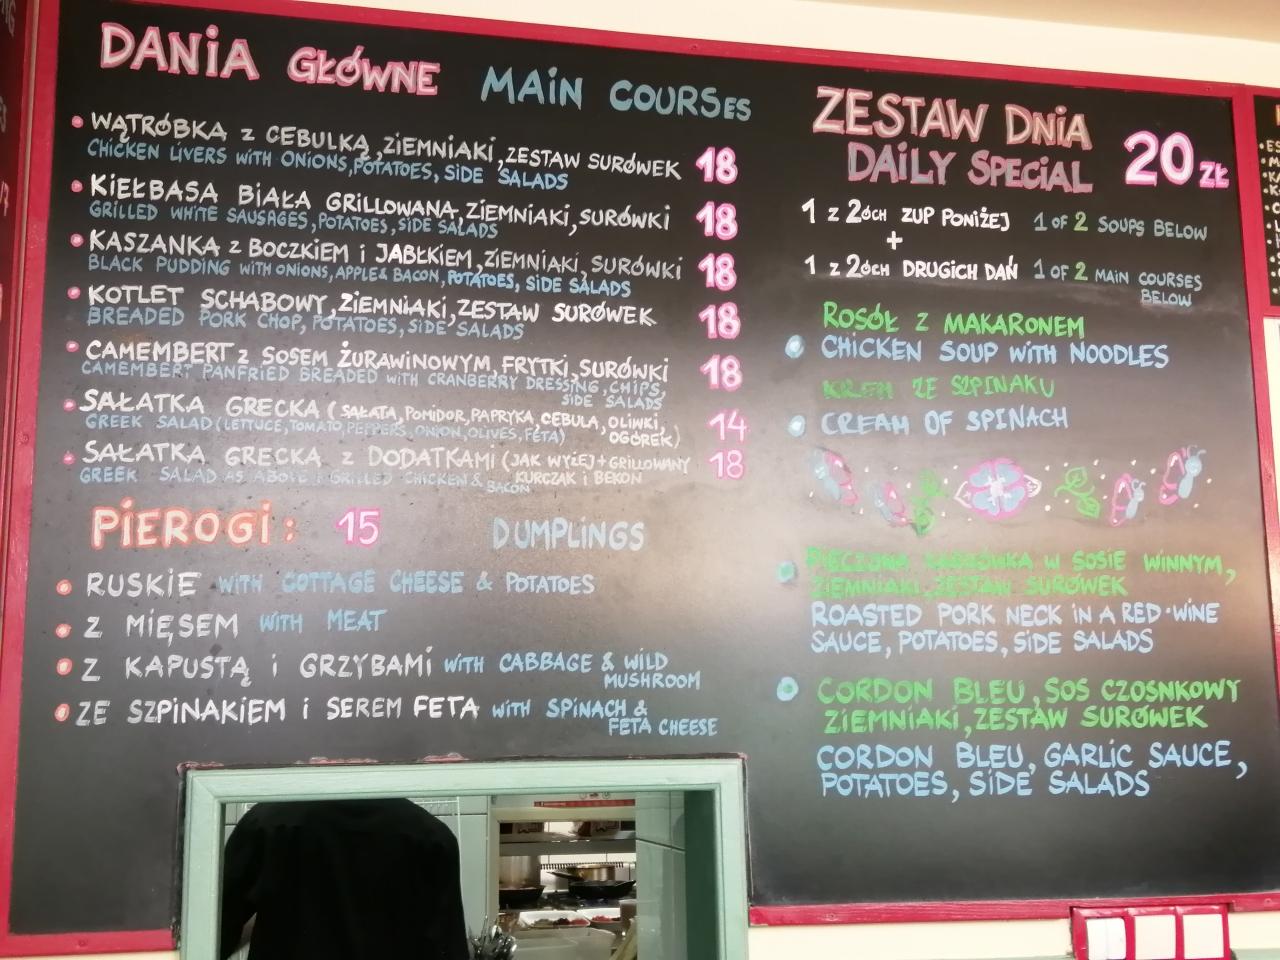 DANiA GŁÓWNE MAiN COURSES
WĄTRÓBKA z CEBULKĄ, ZiEMNiAKi, ZESTAW SURÓWEK 18
CHiCKEN LiVERS WiTH ONiONS, POTATOES, SiDE SALADS
KiEŁBASA BiAŁA GRiLLOWANA, ZiEMNiAKi, SURÓWKi 18
GRiLLED WHiTE SAUSAGES, POTATOES, SiDE SALADS
KASZANKA z BOCZKiEM i JABŁKiEM, ZiEMNiAKi, SURÓWKi 18
BLACK PUDDiNG WiTH ONiONS, APPLE & BACON, POTATOES, SiDE SALADS
KOTLET SCHABOWY, ZiEMNiAKi, ZESTAW SURÓWEK 18
BREADED PORK CHOP, POTATOES, SiDE SALADS
CAMEMBERT z SOSEM ŻURAWiNOWYM, FRYTKi, SURÓWKi 18
CAMEMBERT PANFRiED BREADED WiTH CRANBERRY DRESSiNG, CHiPS,
SiDE SALADS
SAŁATKA GRECKA (SAŁATA, POMiDOR, PAPRYKA, CEBULA, OLiWKi, 14
OGÓREK)
GREEK SALAD (LETTUCE, TOMATO, PEPPERS, ONiON, OLiVES, FETA)
SAŁATKA GRECKA z DODATKAMi (JAK WYŻEJ + GRiLLOWANY 18
KURCZAK i BEKON
GREEK SALAD AS ABOVE GRiLLED CHiCKEN &
BACON
PiEROGi: 15 DUMPLiNGS
RUSKiE WiTH COTTAGE CHEESE & POTATOES
Z MiĘSEM WiTH MEAT
Z KAPUSTĄ i GRZYBAMi WiTH CABBAGE & WiLD
MUSHROOM
ZE SZPiNAKiEM i SEREM FETA WiTH SPiNACH &
FETA CHEESE
ZESTAW DNiA
DAiLY SPECiAL 20 ZŁ
1 z 2óch ZUP PONiŻEJ 1 OF 2 SOUPS BELOW
+
1 z 2óch DRUGiCH DAŃ 1 OF 2 MAiN COURSES
BELOW
ROSÓŁ Z MAKARONEM
CHiCKEN SOUP WiTH NOODLES
KREM ZE SZPiNAKU
CREAM OF SPiNACH
PiECZONA KARKÓWKA W SOSiE WiNNYM,
ZiEMNiAKi, ZESTAW SURÓWEK
ROASTED PORK NECK iN A RED-WiNE
SAUCE, POTATOES, SiDE SALADS
CORDON BLEU, SOS CZOSNKOWY
ZiEMNiAKi, ZESTAW SURÓWEK
CORDON BLEU, GARLiC SAUCE,
POTATOES, SiDE SALADS